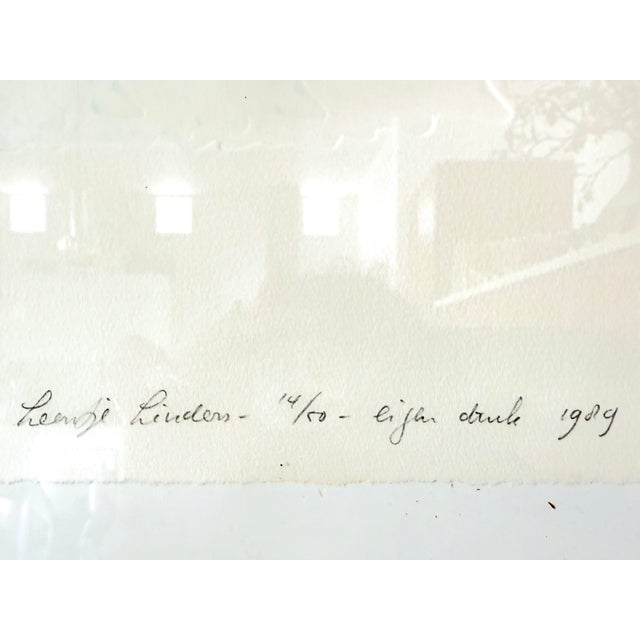 Leentje Linders - 14/50 - eigen druk 1989